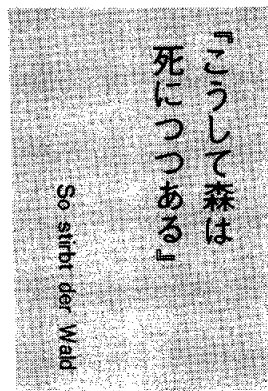 『こうして森は
死につつある』
So stirbt der Wald